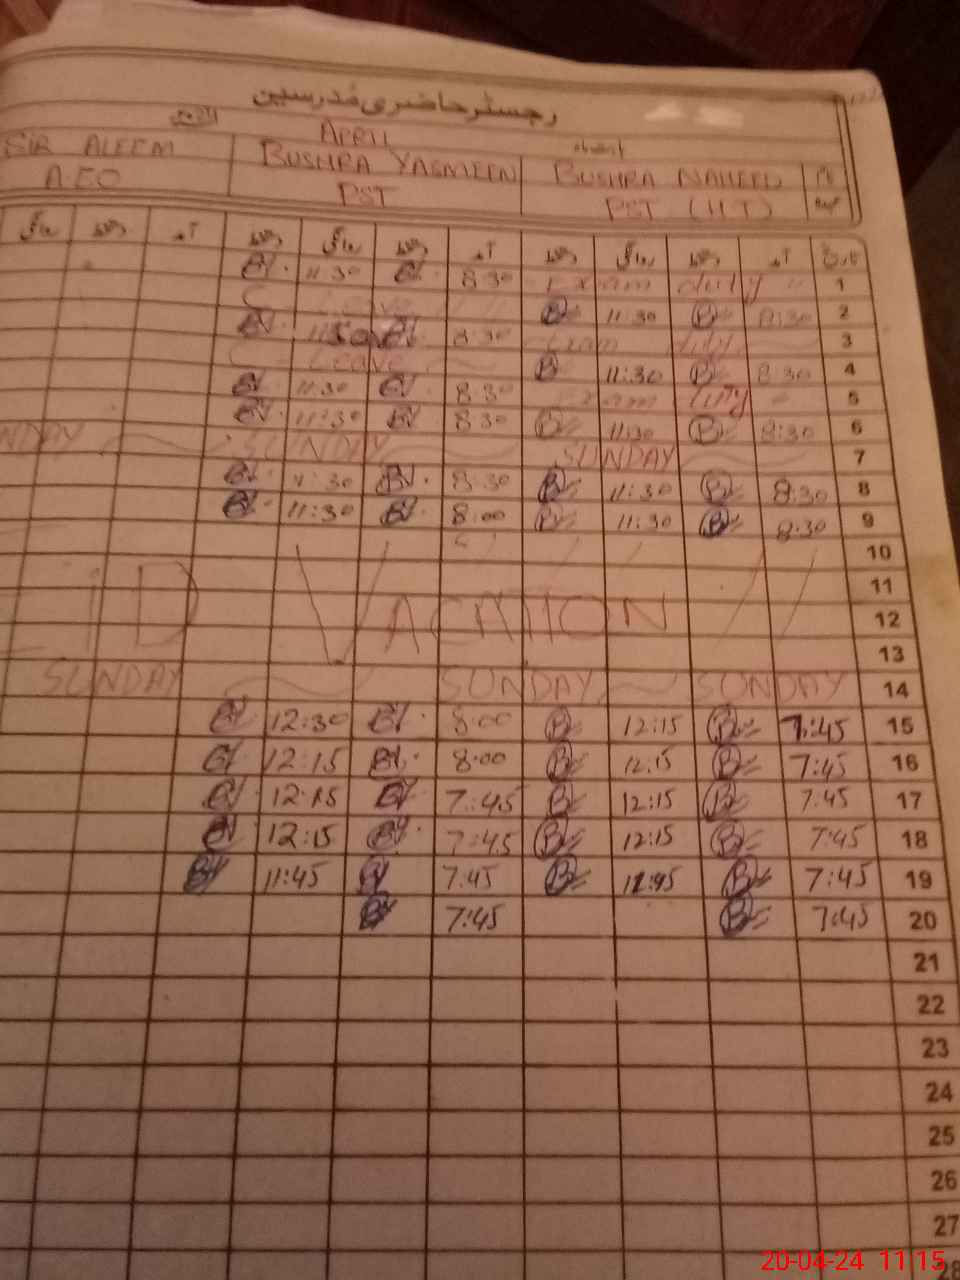 رجسٹر حاضری مدرسین
APRIL
SIR ALEEM BUSHRA YASMEEN BUSHRA NAHEED نام
A.EO PST PST (H.T) عہدہ
روانگی دستخط آمد دستخط روانگی دستخط آمد دستخط روانگی دستخط آمد تاریخ
11:30 8:30 Exam duty 1
Leave 11:30 8:30 2
11:30 8:30 Exam duty 3
Leave 11:30 8:30 4
11:30 8:30 Exam duty 5
11:30 8:30 11:30 8:30 6
SUNDAY SUNDAY 7
11:30 8:30 11:30 8:30 8
11:30 8:00 11:30 8:30 9
10
11
EID VACATION 12
13
SUNDAY SUNDAY SUNDAY 14
12:30 8:00 12:15 7:45 15
12:15 8:00 12:15 7:45 16
12:15 7:45 12:15 7:45 17
12:15 7:45 12:15 7:45 18
11:45 7:45 7:45 19
7:45 7:45 20
21
22
23
24
25
26
27
28
20-04-24 11:15